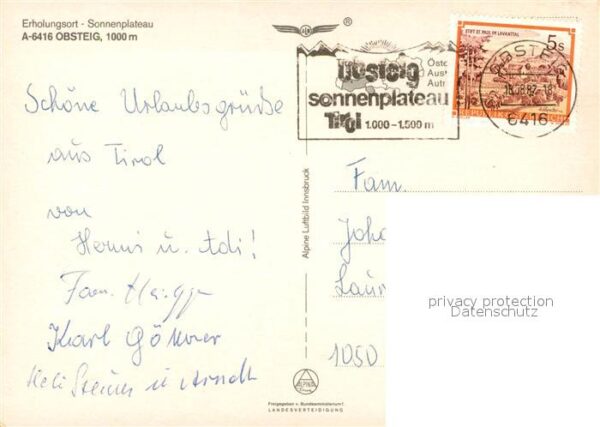 Erholungsort - Sonnenplateau
A-6416 OBSTEIG, 1000 m
®
Obsteig
sonnenplateau
Tirol 1.000 – 1.500 m
STIFT ST. PAUL IM LAVANTTAL
5s
OBSTEIG
6416
Schöne Urlaubsgrüße
aus Tirol
von
Hermi u. Adi!
Fam.
Karl
Heli Steiner u
Fam.
Joha
Laur
1050
Alpine Luftbild Innsbruck
privacy protection
Datenschutz
ALPINE
Freigegeben v. Bundesministerium f.
LANDESVERTEIDIGUNG